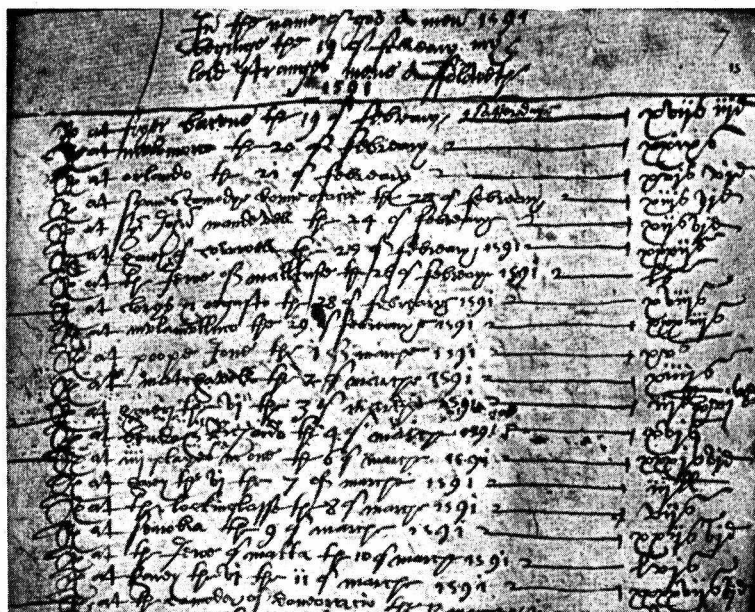 In the name of god A men 1591
beginge the 19 of febreary my
lord stranges mene A ffoloweth
1591
Rd at fryer bacvne the 19 of febreary satterdaye xvijs iijd
Rd at mvlomvrco the 20 of febreary xxixs
Rd at orlando the 21 of febreary xvjs vjd
Rd at spanes comodye donne oracoe the 23 of febreary xiijs vjd
Rd at Syr John mandevell the 24 of febreary xijs vjd
Rd at harey of cornwell the 25 of febreary 1591 xxxijs
Rd at the Jewe of malltuse the 26 of febrearye 1591 ls
Rd at clorys &ergasto the 28 of febreary 1591 xviijs
Rd at mvlamvlluco the 29 of febrearye 1591 xxxiiijs
Rd at poope Jone the 1 of marche 1591 xvs
Rd at matchavell the 2 of marche 1591 xiiijs
Rd at harey the vj the 3 of marche 1591 iijll
Rd at the 4 of marche 1591 xvjs
Rd at iiij playes in one the 6 of marche 1591 xxxjs vjd
Rd at harey the vj the 7 of marche 1591 iijll
Rd at the lockinglasse the 8 of marche 1591 vijs
Rd at senobia the 9 of marche 1591 xxijs vjd
Rd at the Jewe of malta the 10 of marche 1591 lvjs
Rd at harey the vj the 11 of marche 1591
Rd at the comodey of doneoracio the